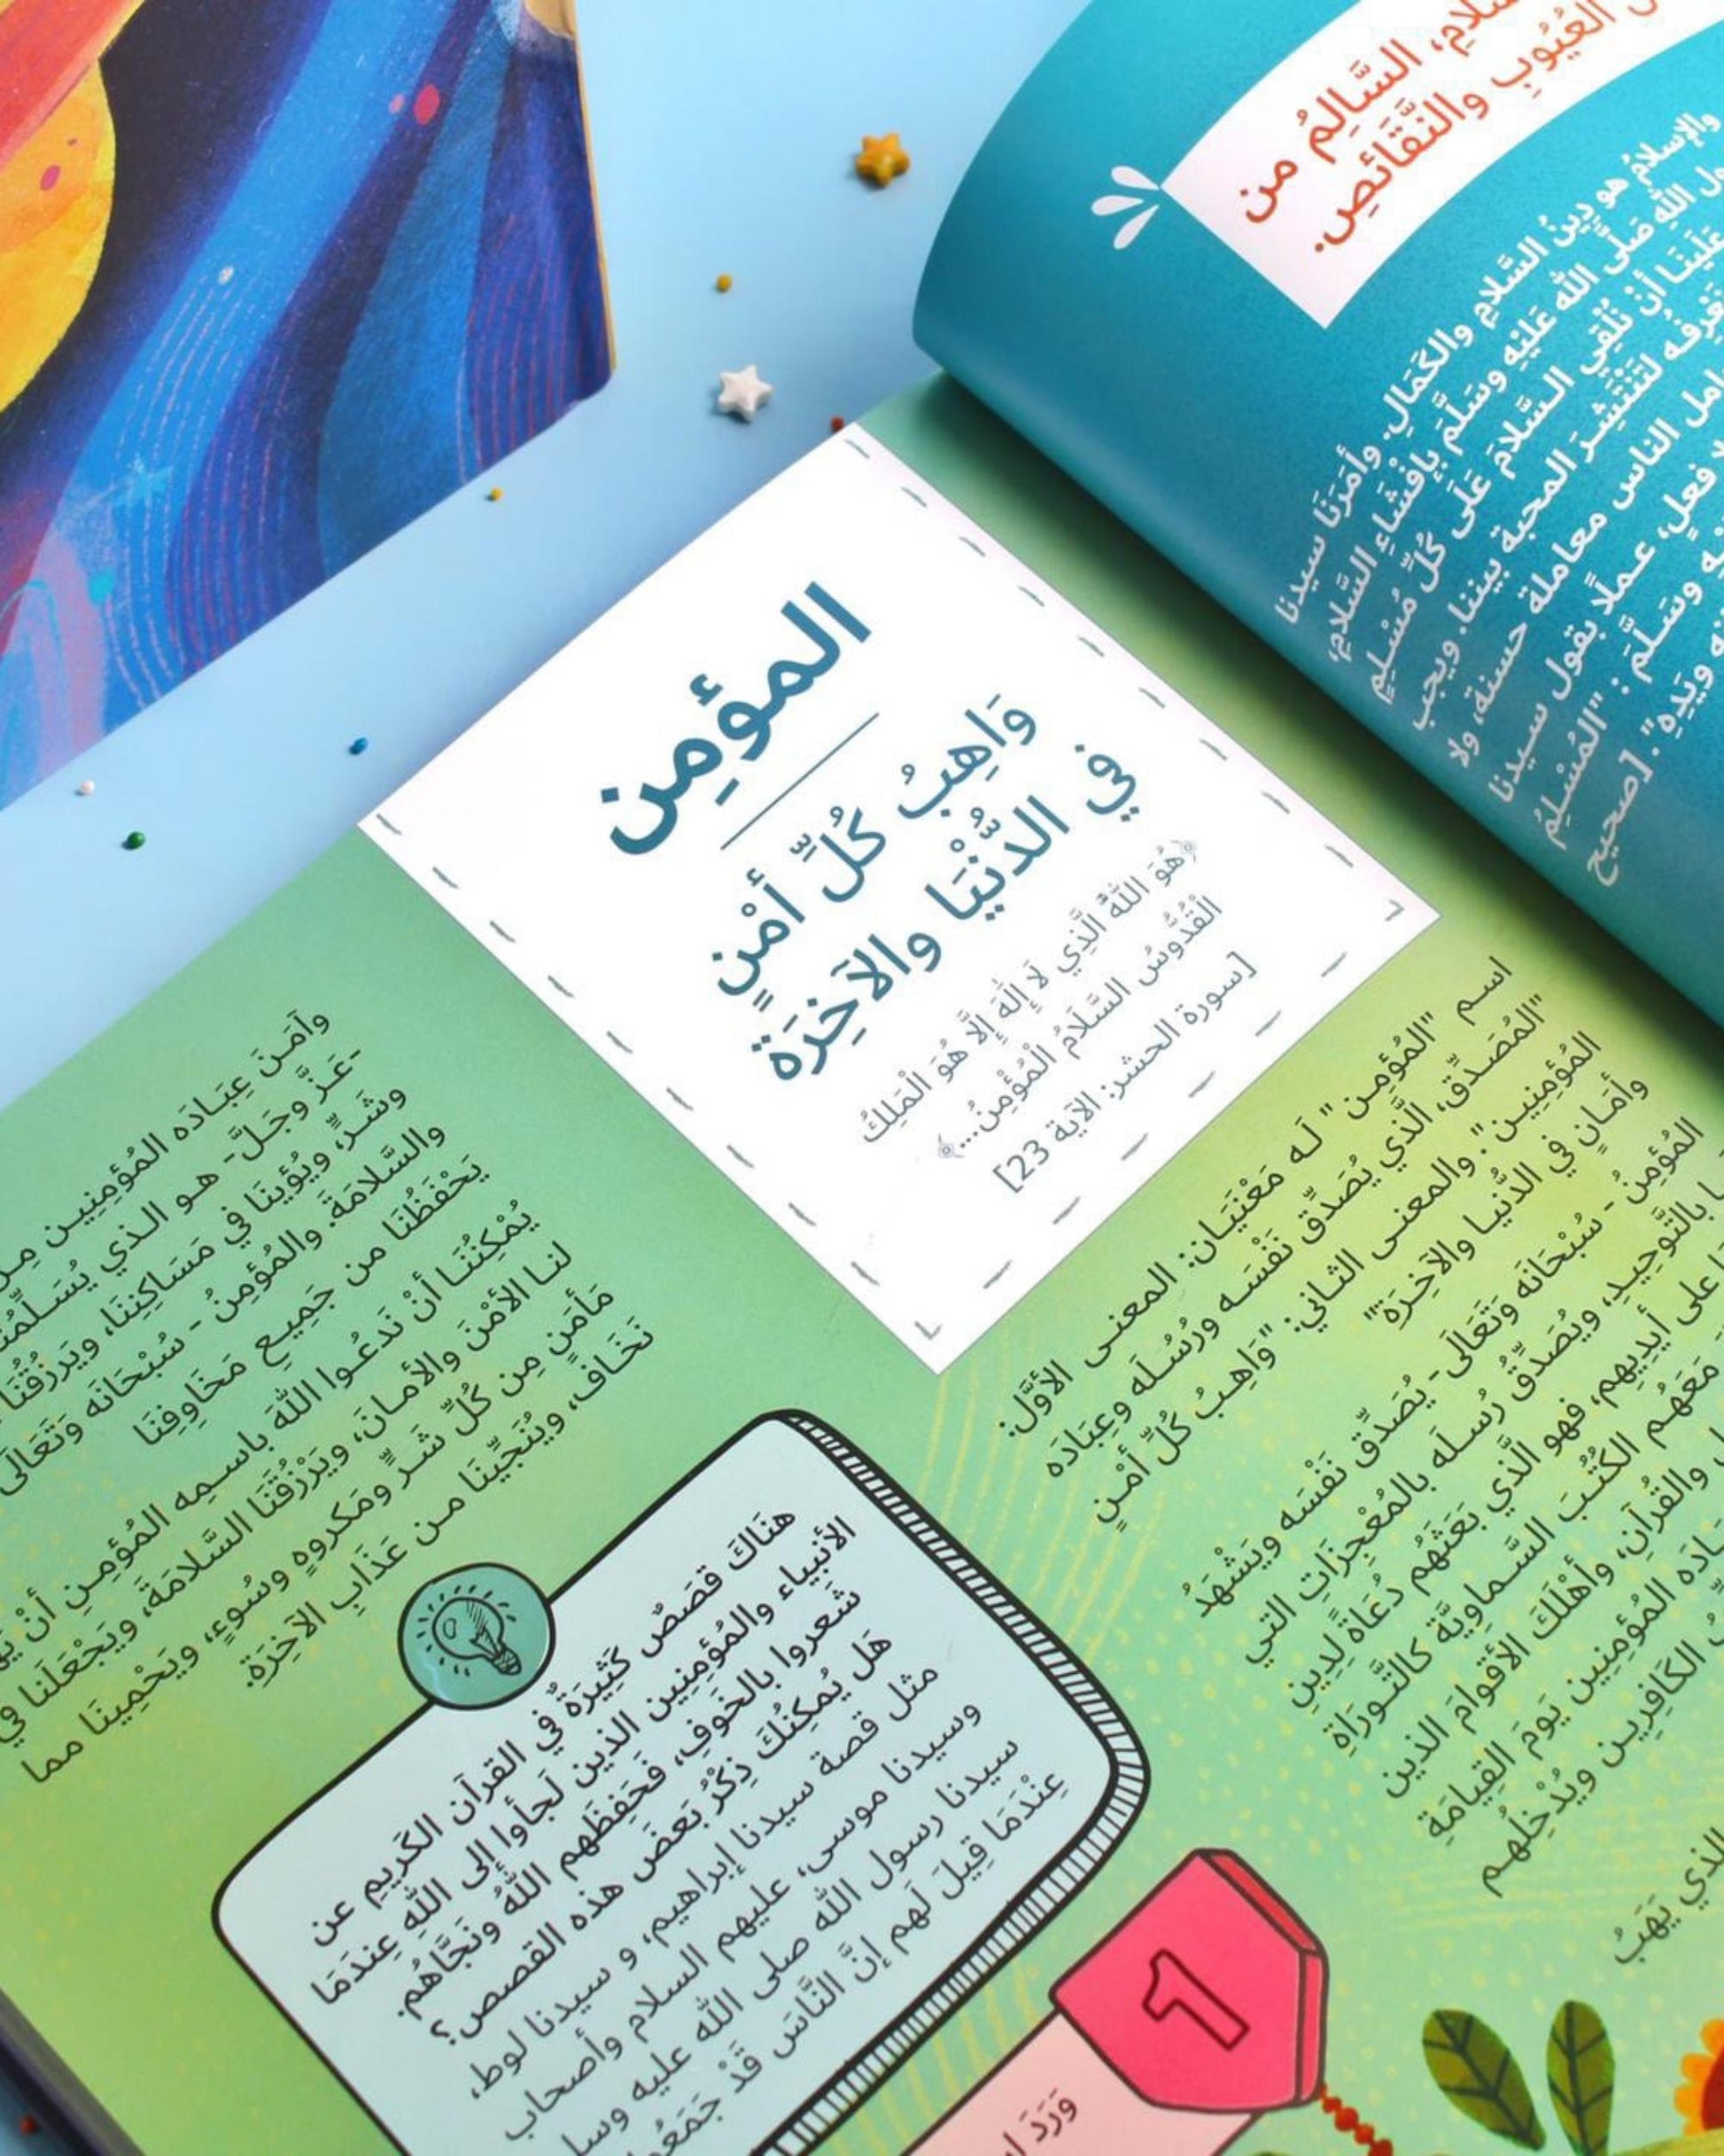 السَّالِمُ من
العُيُوبِ والنَّقَائصِ.
والإسلامُ هو دِينُ السَّلامِ والكَمَالِ. وأَمَرَنَا سيدنا
الله صَلَّى الله عَلَيْه وسَلَّم بِإفْشَاءِ السَّلامِ،
عَلَيْنَا أَنْ نُلْقِي السَّلامَ عَلَى كُلِّ مُسْلِمٍ
لتَنْتَشِرَ المحبة بيننا. ويجب
الناس معاملة حسنة، ولا
فعلٍ، عملًا بقول سيدنا
وسَلَّمَ: "المُسْلِمُ
ويَدِهِ". [صحيح
المؤمِن
وَاهِبُ كُلِّ أمْنٍ
في الدُّنْيَا والآخِرَة
﴿هُوَ اللَّهُ الَّذِي لَا إِلَٰهَ إِلَّا هُوَ الْمَلِكُ
الْقُدُّوسُ السَّلَامُ الْمُؤْمِنُ...﴾
[سورة الحشر: الآية 23]
اسم "المُؤمِن" لَه مَعْنَيَان: المعنى الأوَّل:
"المُصَدِّق، الَّذي يُصَدِّق نَفْسَه ورُسُلَه وعِبَادَه
المُؤمِنِين". والمعنى الثاني: "وَاهِبُ كُلِّ أمْنٍ
وأَمَانٍ في الدُّنيا والآخِرَة"
المُؤمِنُ - سُبْحَانَه وَتَعَالَى- يُصَدِّق نَفْسَه ويَشْهَدُ
بالتَّوحِيدِ، ويُصَدِّقُ رُسلَه بالمُعْجِزَاتِ التي
على أيدِيهِم، فهو الَّذي بَعَثَهُم دُعَاةً لِدِينِ
مَعَهُم الكُتُبَ السَّماوِيَّة كالتَّوراةِ
والقُرآنِ، وأَهْلَكَ الأقْوامَ الذين
المُؤمِنِين يَومَ القِيامَةِ
الكَافِرِين ويُدْخِلُهم
الذي يَهَبُ
وآمَنَ عِبَادَه المُؤمِنِين مِن
-عَزَّ وجَلَّ- هو الذي يُسَلِّمُنَا
وشَرٍّ، ويُؤْيِنَا في مَسَاكِنِنَا، ويَرْزُقُنَا
والسَّلامَة. والمُؤمِنُ - سُبْحَانَه وَتَعَالَى
يَحْفَظُنَا من جَمِيعِ مَخَاوِفِنَا
يُمْكِنُنَا أنْ نَدعُوا اللهَ باسمِه المُؤمِن أنْ
لنا الأمْنَ والأمانَ، ويَرْزُقَنَا السَّلامَةَ، ويَجْعَلَنَا في
مَأمَنٍ مِن كُلِّ شَرٍّ ومَكروهٍ وسُوءٍ، ويَحْمِينَا مما
نَخَاف، ويُنَجِّينَا من عَذَابِ الآخِرَة.
هنَاكَ قصَصٌ كَثِيرَةٌ في القرآن الكَريمِ عن
الأنبياء والمُؤمِنِين الذين لَجأوا إلى اللهِ عِندَمَا
شَعروا بالخَوفِ، فَحَفِظَهم اللهُ ونَجَّاهُم.
هَل يُمكِنُكَ ذِكْرُ بَعضَ هذه القصص؟
مثل قصة سيدنا إبراهيم، و سيدنا لوط،
وسيدنا موسى، عليهم السلام وأصحاب
سيدنا رسول الله صلى الله عليه وسل
عِنْدَمَا قِيلَ لَهم إنَّ النَّاسَ قَدْ جَمَعُو
1
وَرَدَ ا